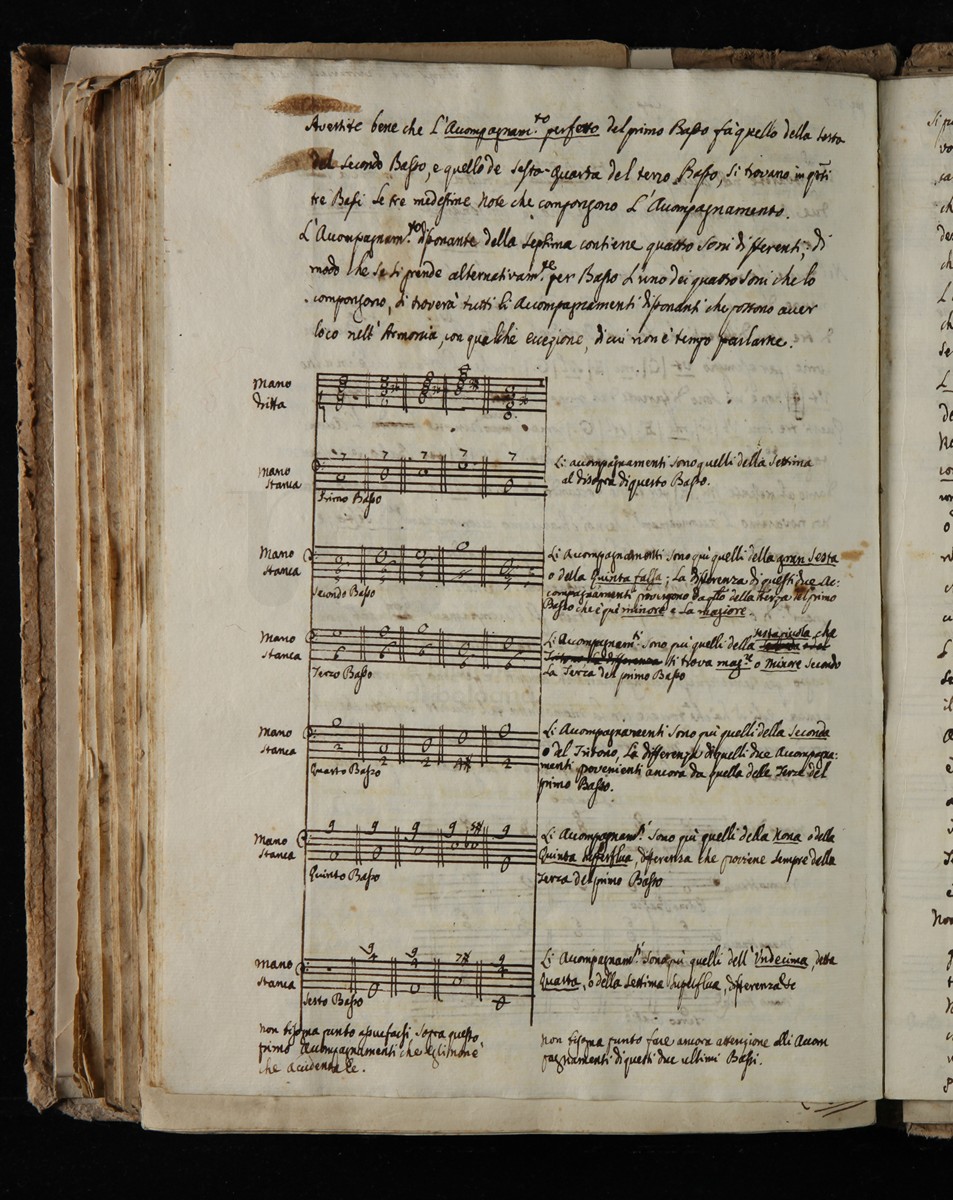 Avertite bene che L'Acompagnam.to perfetto del primo Basso fà quello della sesta
del secondo Basso, e quello de sesta-quarta del terzo Basso, si trovano in
tre Bassi le tre medesime note che compongono L'Acompagnamento.
L'Acompagnam.to disonante della septima contiene quattro soni differenti, di
modo che se si prende alternativam.te per Basso L'uno dei quattro soni che lo
compongono, si troverà tutti li Acompagnamenti dissonanti che possono aver
loco nell'Armonia, con qualche ecegione, di cui non è tempo parlarne.
Mano
dritta
Mano
Stanca
7 7 7 7 7
Primo Basso
Li acompagnamenti sono quelli della settima
al disopra di questo Basso.
Mano
Stanca
Secondo Basso
Li Acompagnamenti sono quì quelli della gran Sesta
o della Quinta falsa; La differenza di questi due Ac:
compagnamenti provengono da della terza del primo
Basso che è quì minore e La magiore.
Mano
Stanca
6 6 6 6 6
Terzo Basso
Li Acompagnam.ti Sono quì quelli della che
si trova mag.re o minore Secondo
La Terza del primo Basso
Mano
Stanca
2 2 2 4# 2
Quarto Basso
Li Acompagnamenti Sono quì quelli della Seconda
o del Tritono, La differenza di quelli due Accompagna:
menti provenienti ancora da quella delle Terze del
primo Basso.
Mano
Stanca
9 9 9 9 5# 9
Quinto Basso
Li Acompagnam.ti Sono quì quelli della Nona o della
Quinta superflua, differenza che proviene sempre della
Terza del primo Basso
Mano
Stanca
9 9 7# 9
4 4 4
Sesto Basso
Li Acompagnam.ti Sono quì quelli dell'Undecima, detta
Quarta, o della Settima Superflua, differenza
non bisogna punto assuefarsi sopra questo
primo Acompagnamenti che egli non è
che accidentale.
non bisogna punto fare ancora attenzione alli Acom
pagnamenti di questi due ultimi Bassi.